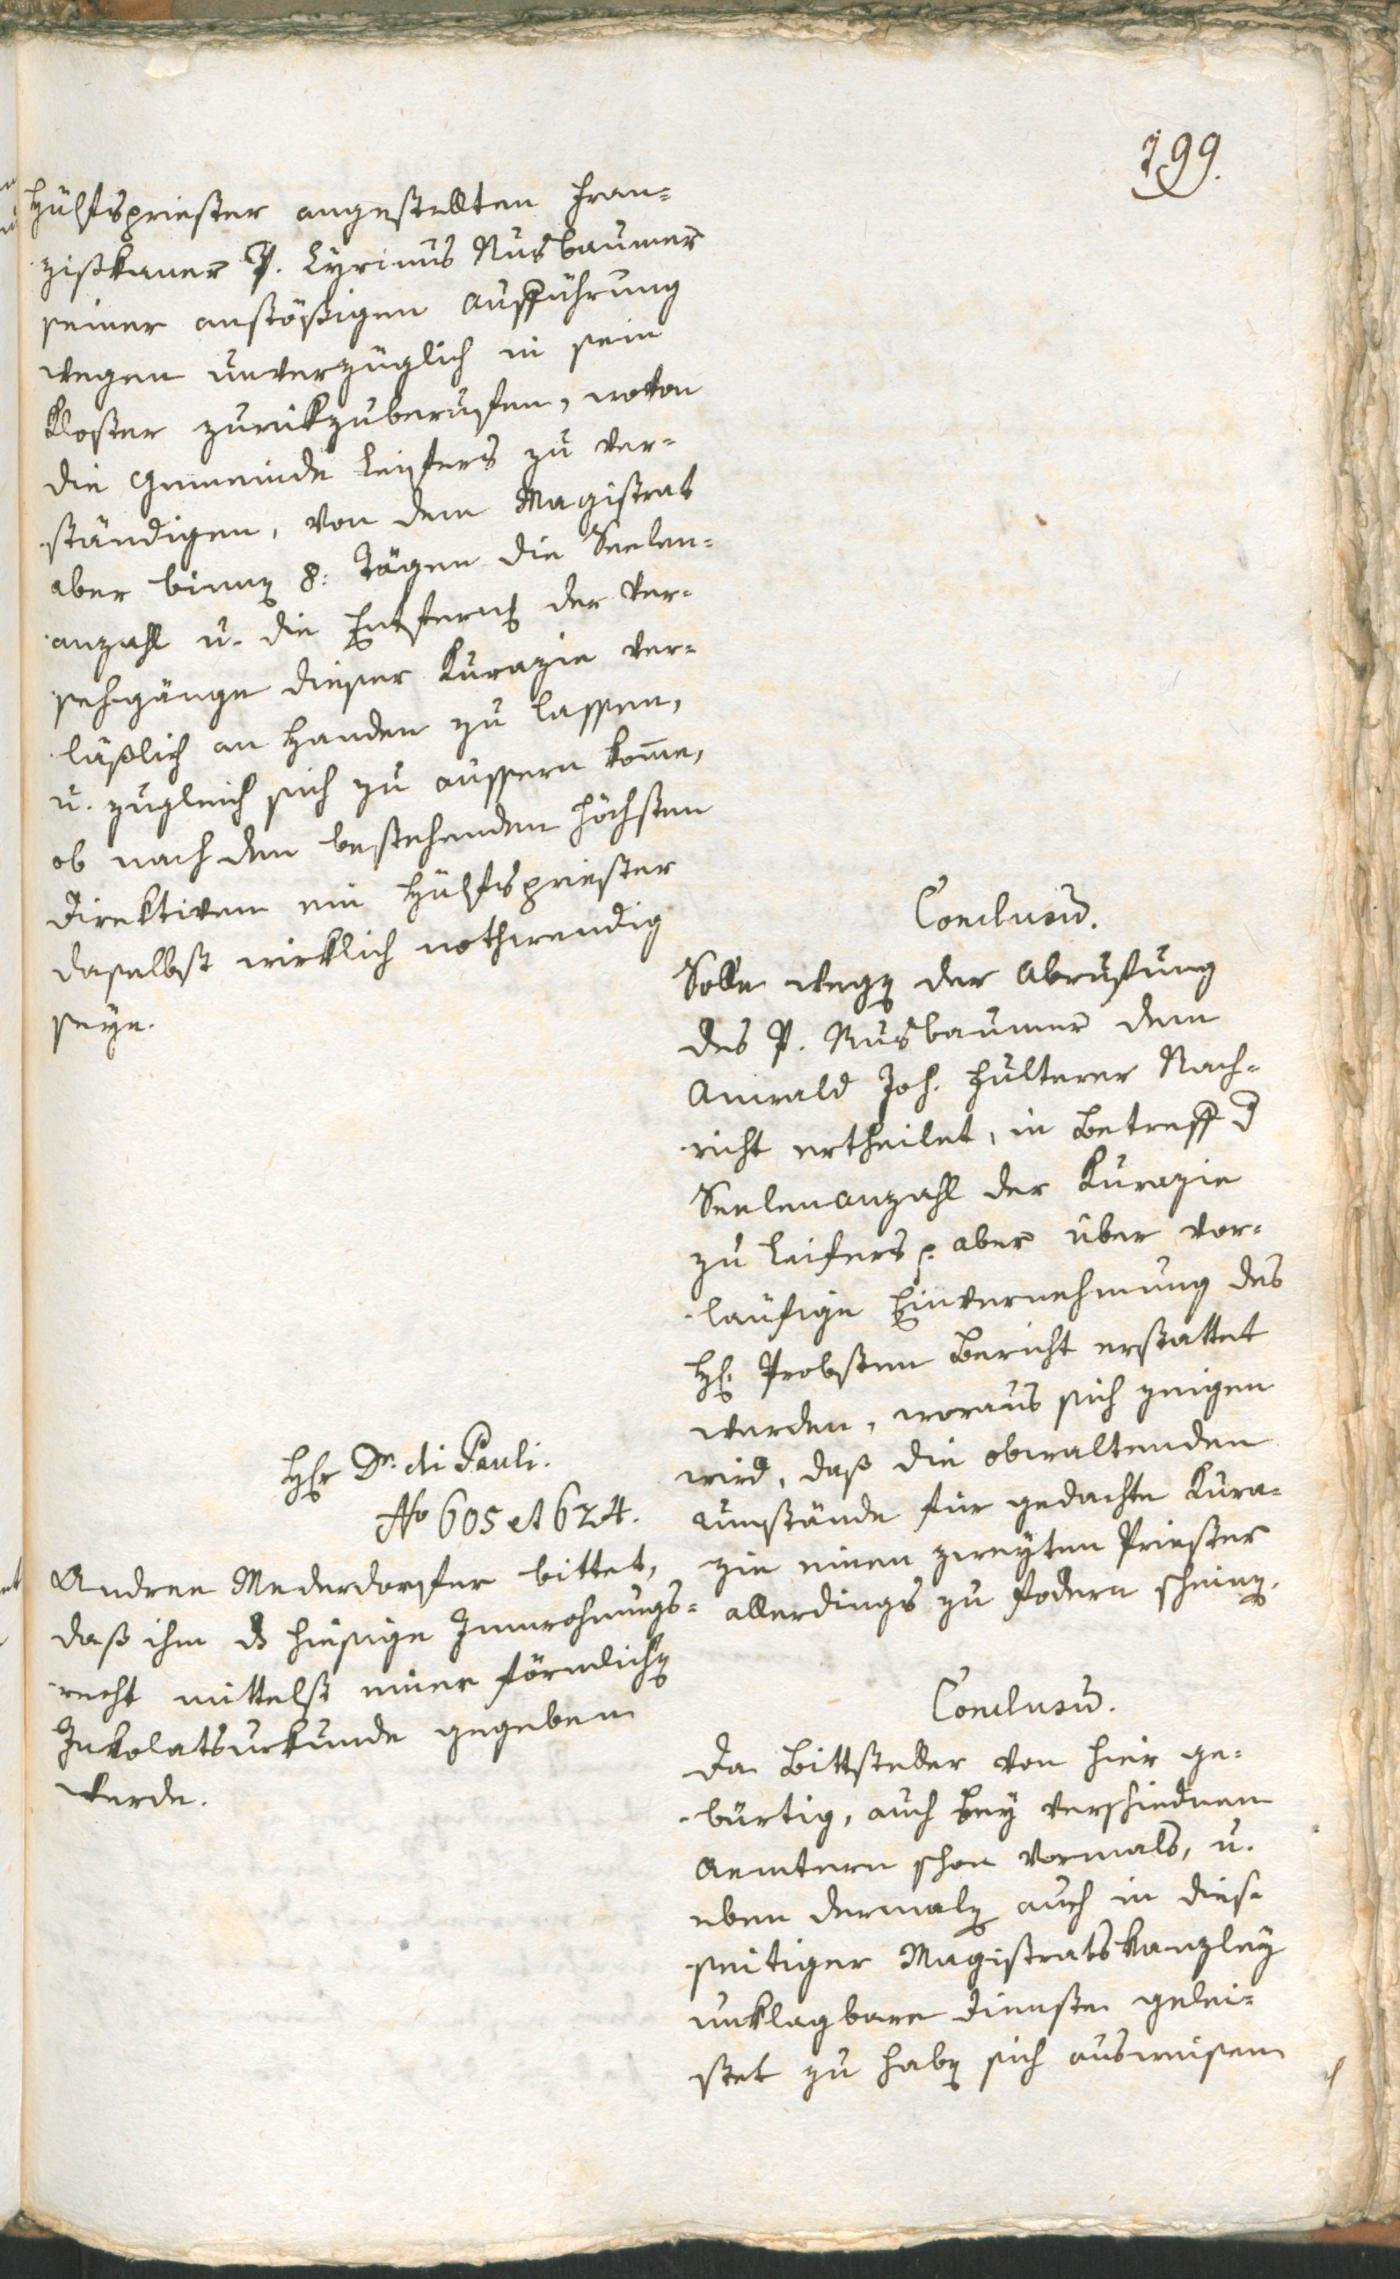 199.
Hülfspriester angestellten Fran=
zißkaner P. Lyrinus Nusbaumer
seiner anstößigen Aufführung
wegen unverzüglich in sein
Kloster zurükzuberufen, wovon
die Gemeinde Leifers zu ver=
ständigen, von dem Magistrat
aber binnen 8: Tägen die Seelen=
anzahl u. die Entfernung der Ver=
sehgänge dieser Kurazie ver=
läßlich an Handen zu lassen,
u. zugleich sich zu äussern kome,
ob nach den bestehenden höchsten
Direktiven ein Hülfspriester
daselbst wirklich nothwendig
seye.
Conclusũ.
Solle wegen der Abrufung
des P. Nusbaumer dem
Anwald Joh. Hülterer Nach=
richt ertheilet, in Betreff d
Seelenanzahl der Kurazie
zu Leifers aber über vor=
läufige Einvernehmung des
H: Probsten Bericht erstattet
werden, woraus sich zeigen
wird, daß die obwaltenden
Umstände für gedachte Kura=
zie einen zweyten Priester
allerdings zu fodern scheinen.
Hr Dr. di Pauli.
No 605 et 624.
Andree Mederdorfer bittet,
daß ihm ds hiesige Innwohnungs=
recht mittelst einer förmlichen
Inkolatsurkunde gegeben
werde.
Conclusũ.
Da Bittsteller von hier ge=
bürtig, auch bey verschiednen
Aemtern schon vormals, u.
eben dermalen auch in dies=
seitiger Magistratskanzley
unklagbare Dienste gelei=
stet zu haben sich ausweisen